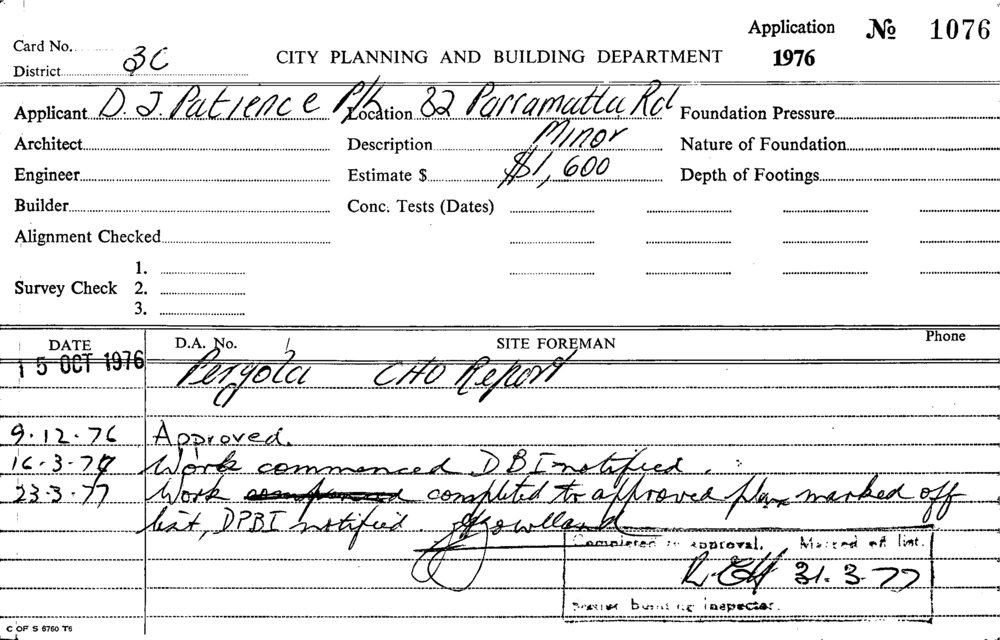 Application № 1076
Card No.
District 3C
CITY PLANNING AND BUILDING DEPARTMENT 1976
Applicant D. J. Patience P/L Location 82 Parramatta Rd Foundation Pressure
Architect Description Minor Nature of Foundation
Engineer Estimate $ $1,600 Depth of Footings
Builder Conc. Tests (Dates)
Alignment Checked
1.
Survey Check 2.
3.
DATE D.A. No. SITE FOREMAN Phone
15 OCT 1976 Pergola CHO Report
9.12.76 Approved.
16.3.77 Work commenced DBI notified.
23.3.77 Work completed to approved plan marked off
list, DPBI notified.
Completed to approval. Marked off list.
31.3.77
building inspector.
C OF S 6760 T6